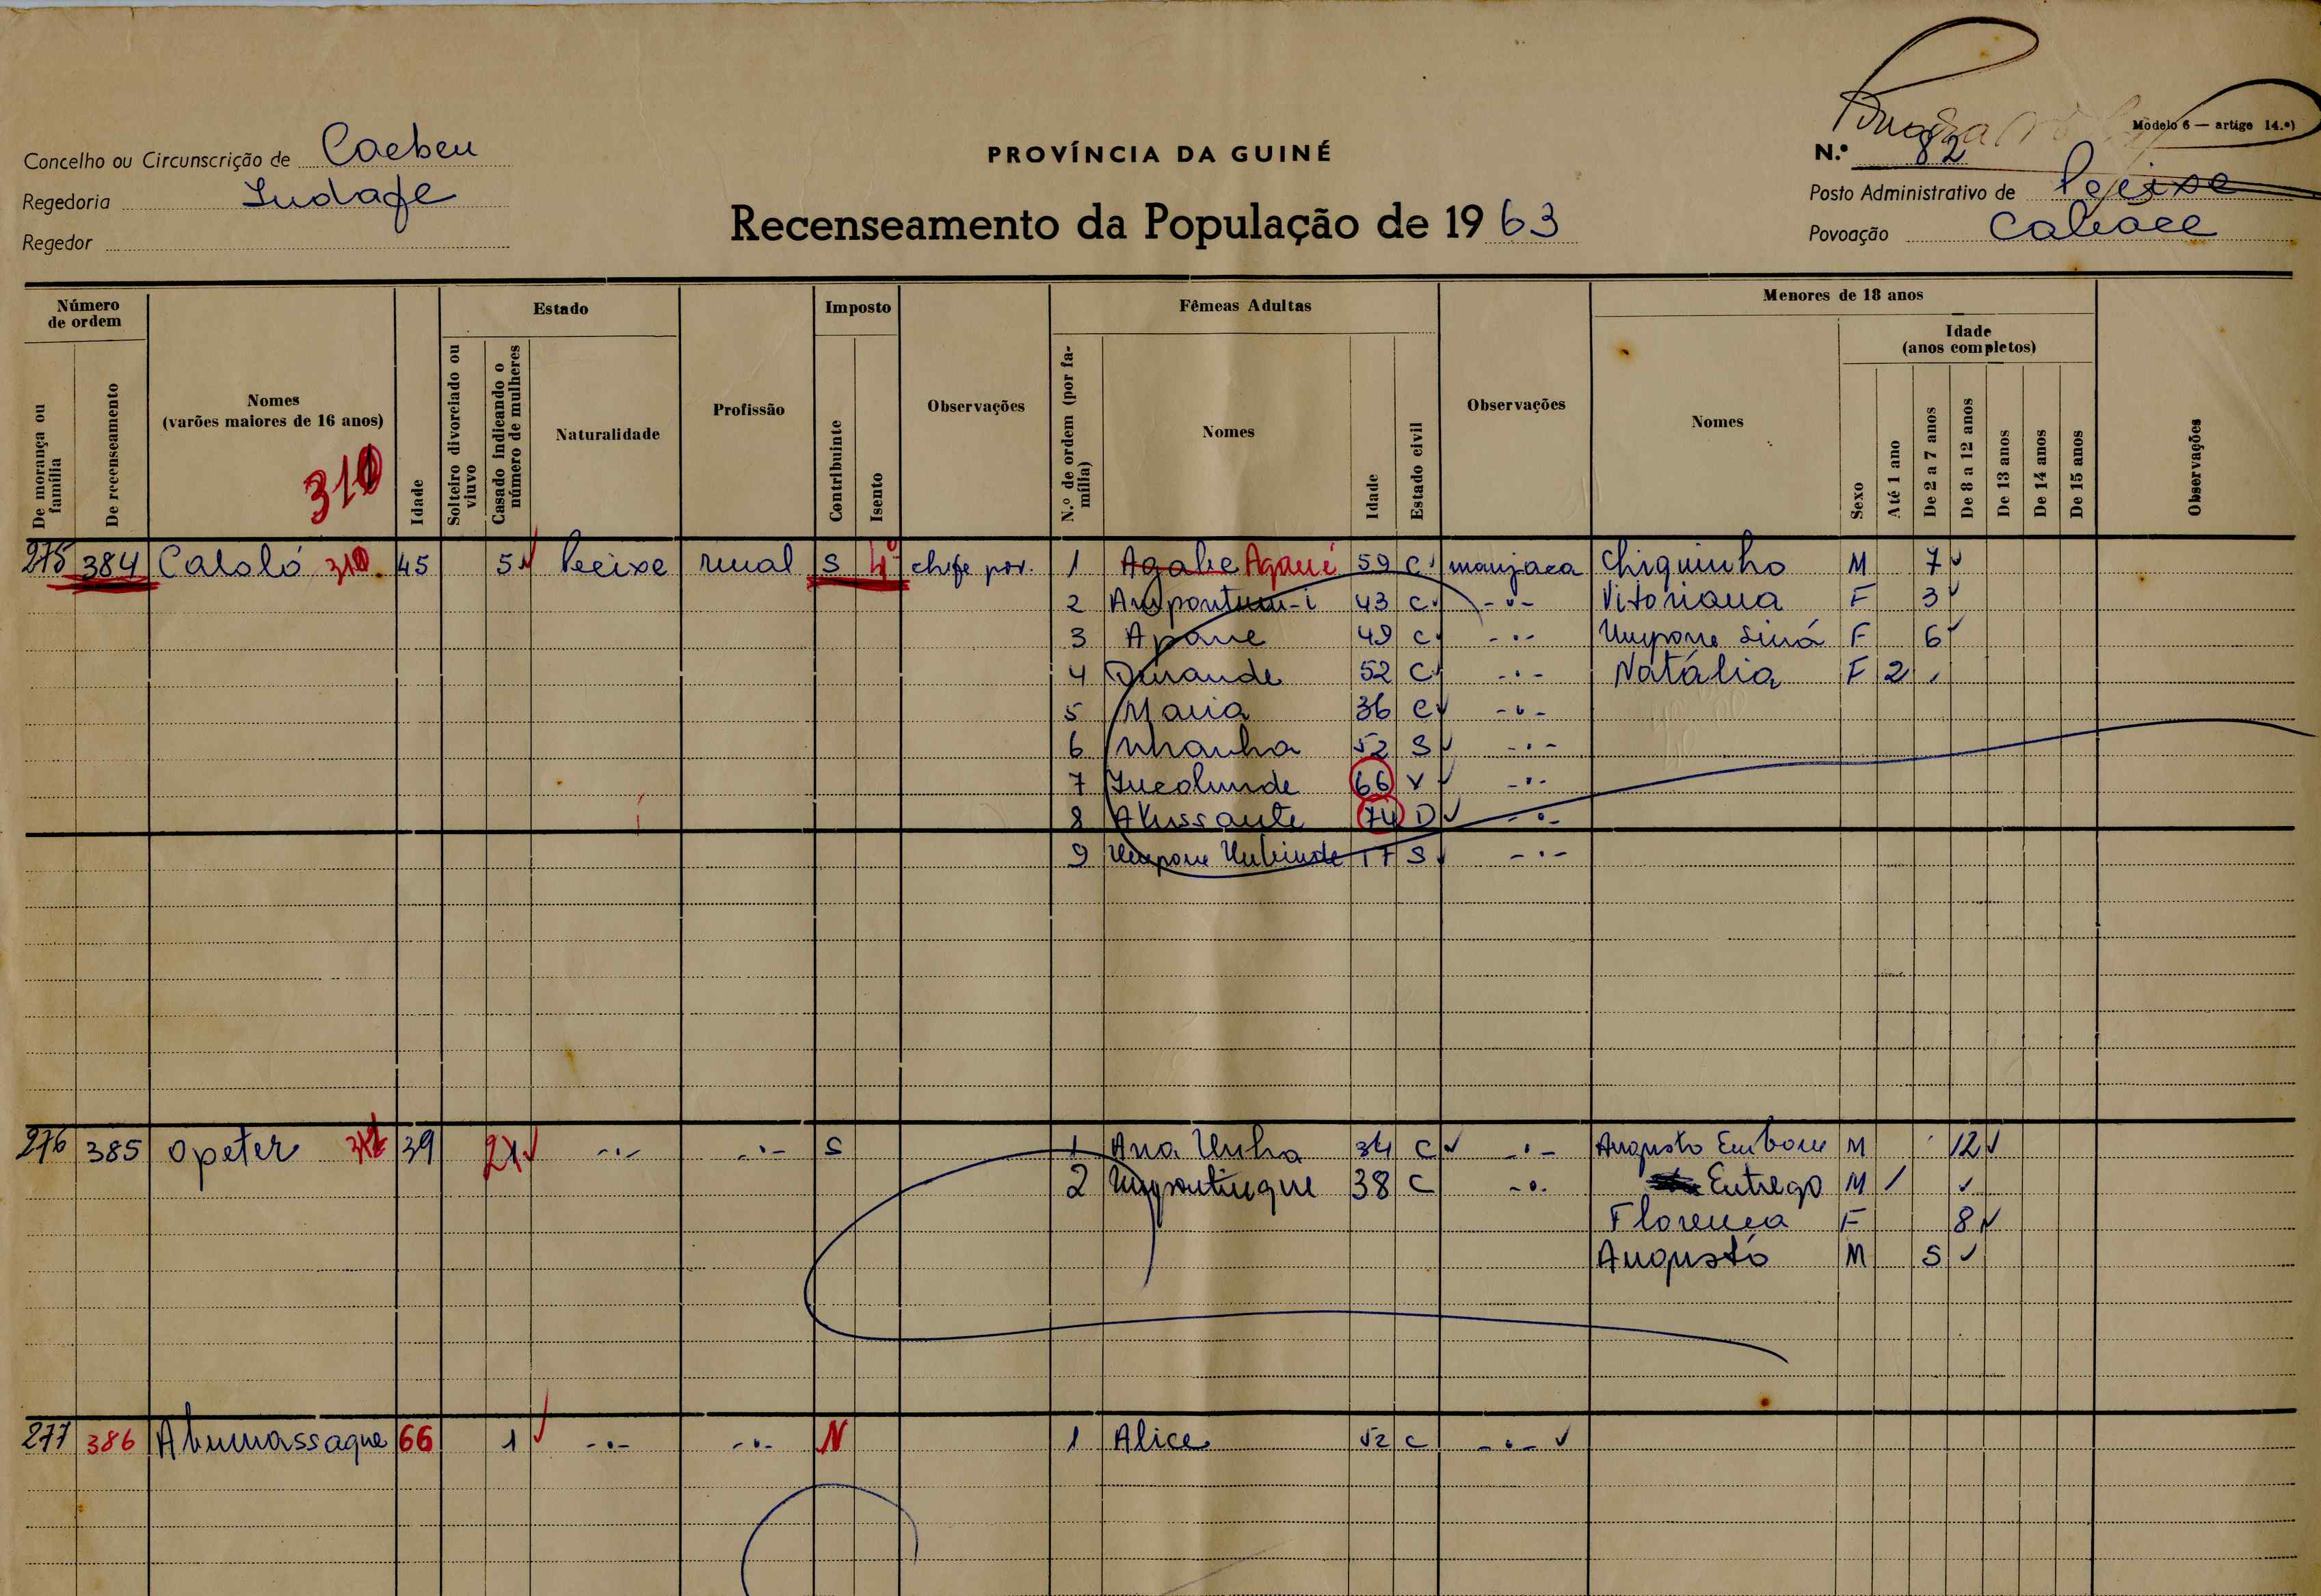 Modelo 6 — artigo 14.º)
Concelho ou Circunscrição de Caebeu
PROVÍNCIA DA GUINÉ
N.º 82
Regedoria Indafe
Recenseamento da População de 1963
Posto Administrativo de Peeixe
Regedor
Povoação
Número de ordem
Estado
Imposto
Fêmeas Adultas
Menores de 18 anos
Idade (anos completos)
De morança ou família
De recenseamento
Nomes (varões maiores de 16 anos)
310
Idade
Solteiro divorciado ou viuvo
Casado indicando o número de mulheres
Naturalidade
Profissão
Contribuinte
Isento
Observações
N.º de ordem (por família)
Nomes
Idade
Estado civil
Observações
Nomes
Sexo
Até 1 ano
De 2 a 7 anos
De 8 a 12 anos
De 13 anos
De 14 anos
De 15 anos
Observações
275 384 Cataló 310 45 5 Peeixe rural S chefe pov. 1 Agabe 59 C manjaca Chiquinho M 7
2 43 C -"- Vitoriana F 3
3 Apane 49 C -"- F 6
4 52 C -"- Natália F 2
5 Maria 36 C -"-
6 Nhanha 52 S -"-
7 66 V -"-
8 74 D -"-
9 17 S -"-
276 385 Opeter 39 2 -"- -"- S 1 Ana 34 C -"- Augusto M 12
2 38 C -"- Entrego M 1
Florença F 8
Augusto M 5
277 386 66 1 -"- -"- N 1 Alice 52 C -"-